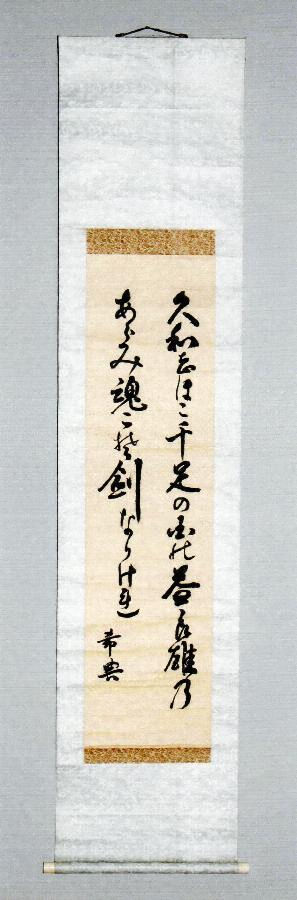 久和志ほこ千足の国能益良雄乃
あらみ魂こ楚剣なりけれ
希典